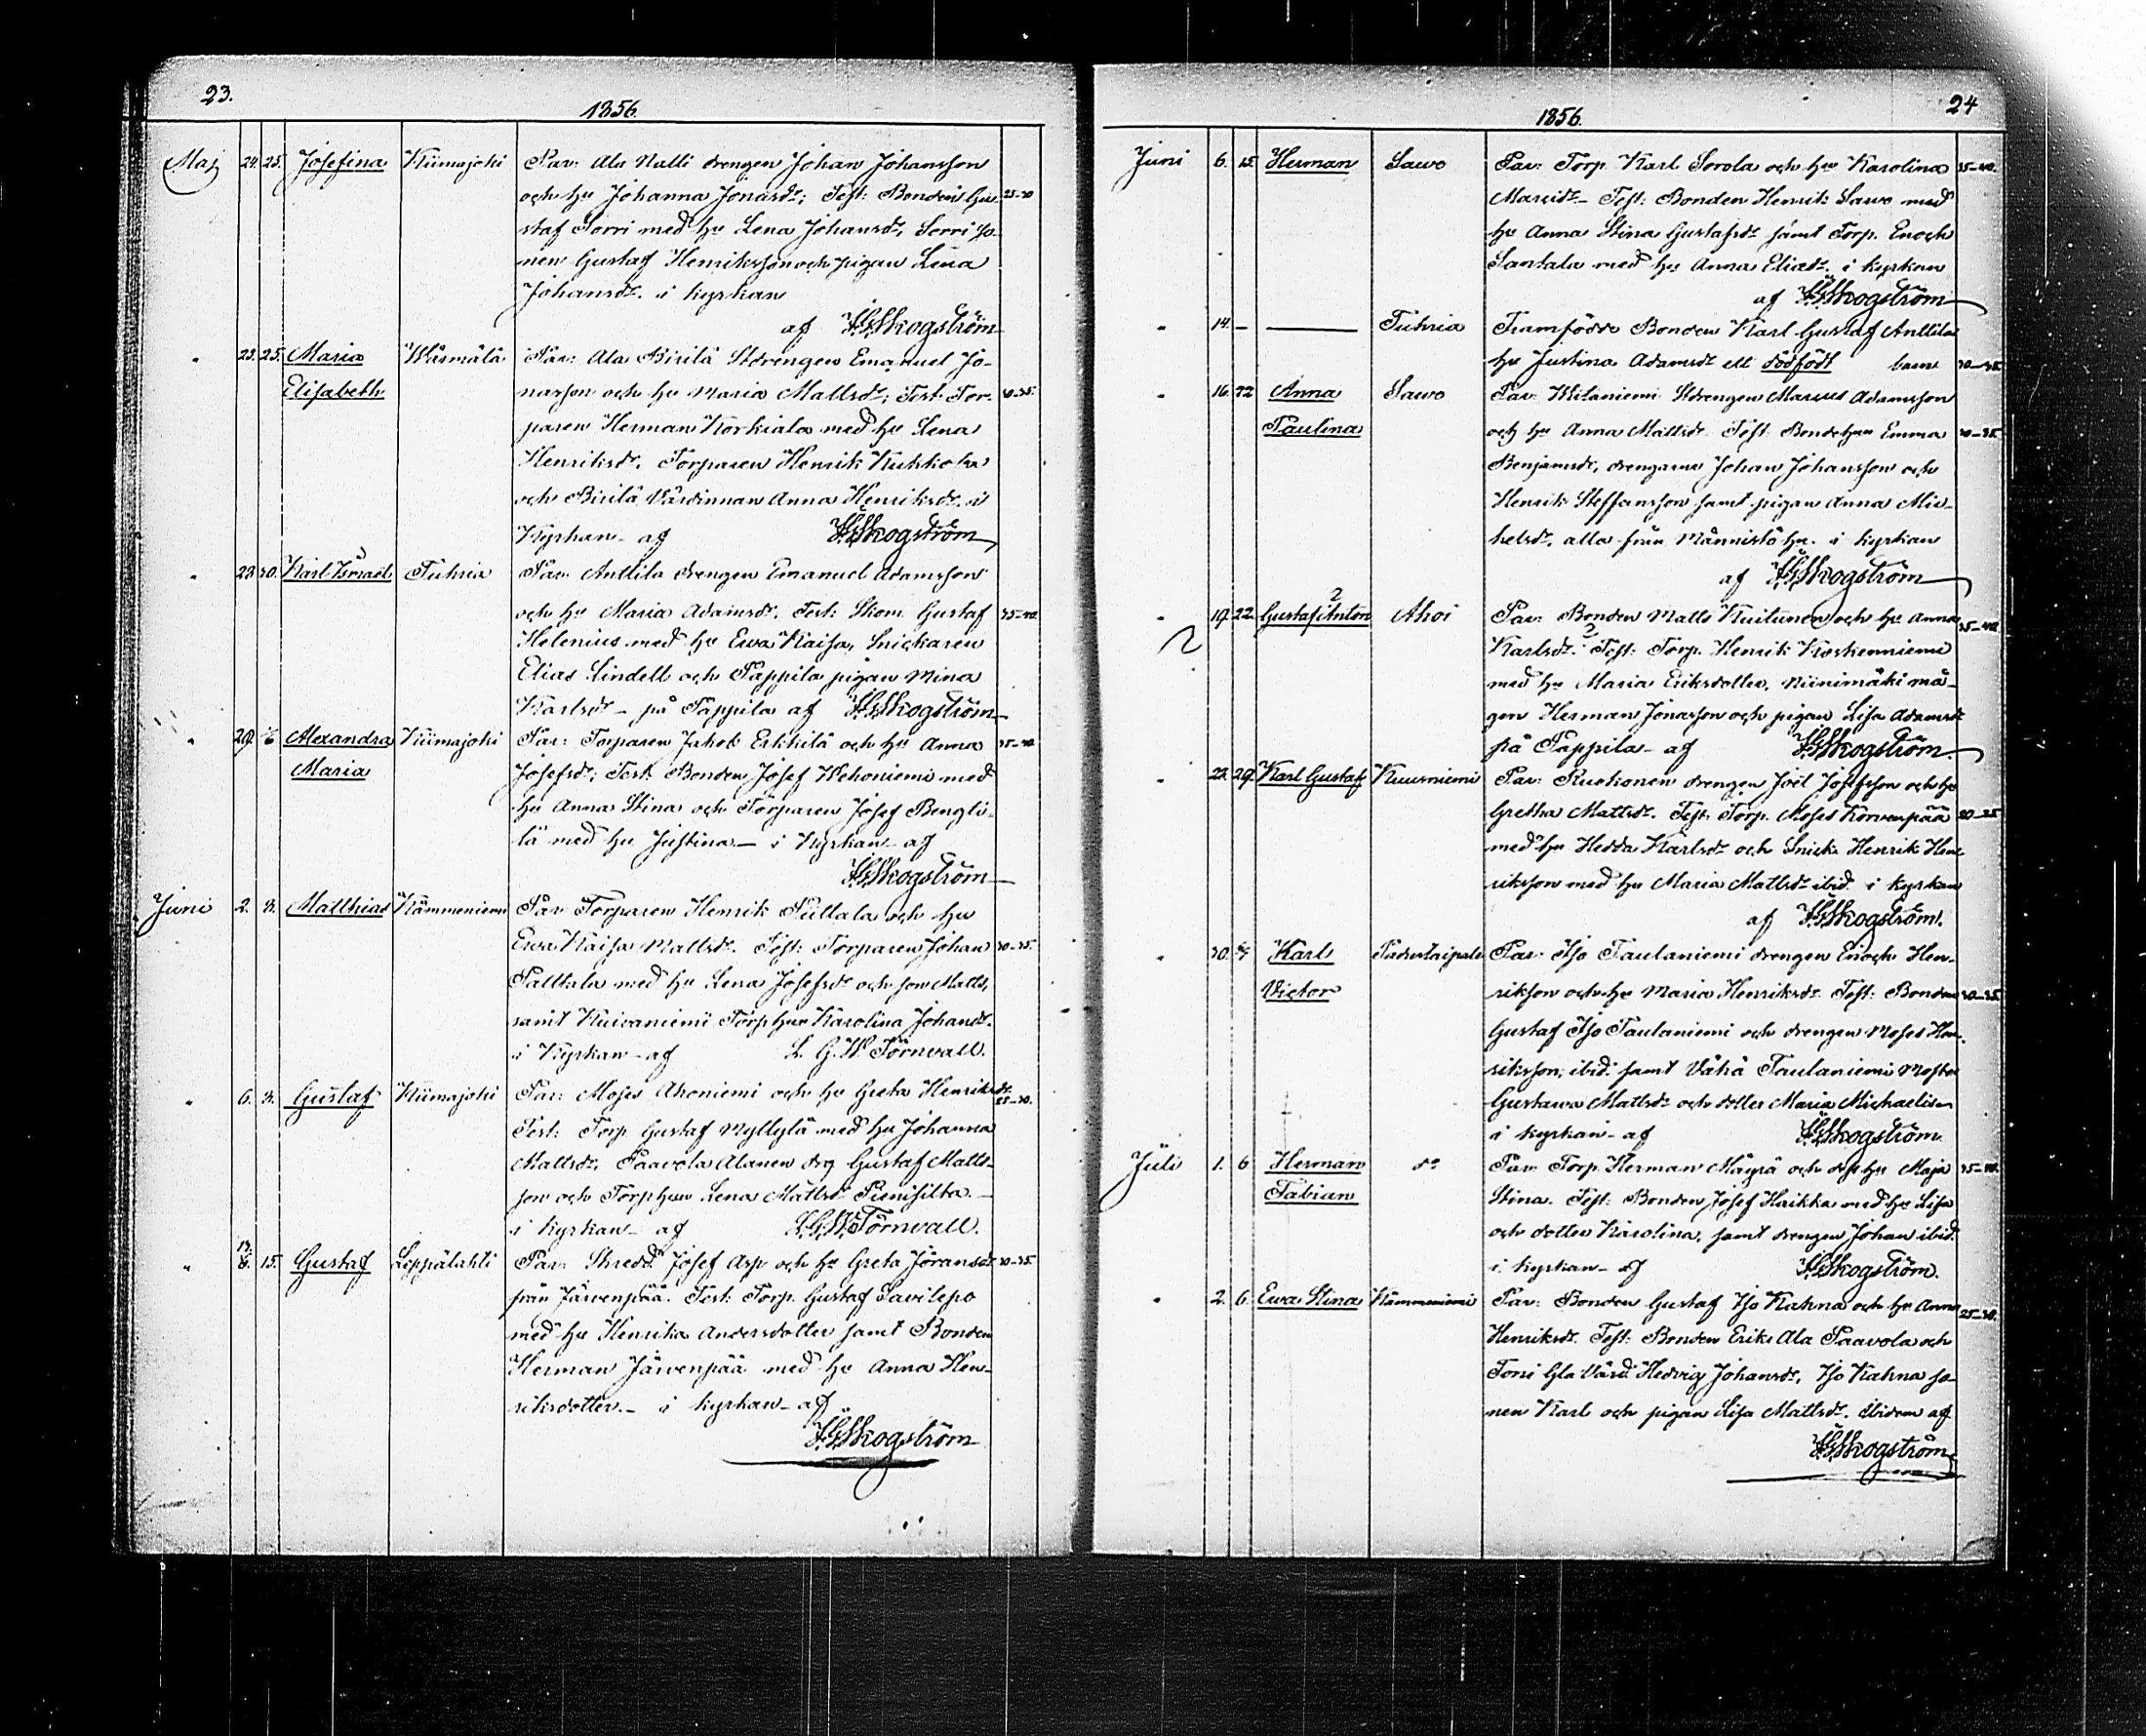 23.
1856.
Maj 24. 25. Josefina Kiimajoki Par: Ala Nalli drengen Johan Johansson
och hu Johanna Jonasdr; Test: Bonden Gu- 25-30
staf Sorri med hu Lena Johansdr, Sorri so-
nen Gustaf Henriksson och pigan Lena
Johansdr. i kyrkan
af H.G.Skogström
" 23. 25. Maria Wärmälä Par: Ala Pirilä Stdrengen Emanuel Jo-
Elisabeth narsson och hu Maria Mattsdr; Test: Tor-
paren Herman Korkiala med hu Lena
Henriksdr, Torparen Henrik
och Pirilä Värdinnan Anna Henriksdr. i
Kyrkan - af H.G.Skogström
" 23. 30. Karl Ismael Tuhria Par: Anttila drengen Emanuel Adamsson
och hu Maria Adamsdr. Test: Skom. Gustaf 35-40.
Helenius med hu Ewa Kaisa, Snickaren
Elias Lindell och Pappila pigan Mina
Karlsdr - på Pappila af H.G.Skogström
" 29. Alexandra Kiimajoki Par: Torparen Jakob Erkkilä och hu Anna 35-40
Maria Josefsdr; Test: Bonden Josef Wehoniemi med
hu Anna Stina och Torparen Josef Bengti-
lä med hu Justina - i Kyrkan - af
H.G.Skogström
Juni 2. 8. Matthias Kämmeniemi Par: Torparen Henrik och hu
Ewa Kaisa Mattsdr. Test: Torparen Johan 30-35.
Pattala med hu Lena Josefsdr och son Matts,
samt Kuivaniemi Torphun Karolina Johansdr.
i Kyrkan - af L. G. W. Törnvall.
" 6. 8. Gustaf Kiimajoki Par: Moses Ahoniemi och hu Greta Henriksdr. 25-30.
Test: Torp. Gustaf Myllylä med hu Johanna
Mattsdr, Paavola Alanen drg Gustaf Matts-
son och Torphun Lena Mattsdr Pienisilta. -
i kyrkan - af L.G.W.Törnvall.
" 15. Gustaf Leppälahti Par: Skredd. Josef Asp och hu Greta Göransdr 30-35.
från Järvenpää. Test: Torp. Gustaf Savilepo
med hu Henrika Andersdotter samt Bonden
Herman Järvenpää med hu Anna Hen-
riksdotter. - i kyrkan - af
H.G.Skogström
24
1856.
Juni 6. 15. Herman Sawo Par: Torp. Karl Sorola och hu Karolina 35-40.
Test: Bonden Henrik Sawo med
hu Anna Stina Gustafsdr samt Torp. Enoch
Santala med hu Anna Eliasdr. i kyrkan
af H.G.Skogström
" 14. - Tuhria Framfödde Bonden Karl Gustaf Anttilas
hu Justina Adamsdr ett dödfödt barn 30-35
" 16. 22 Anna Sawo Par: Stdrengen Adamsson
Paulina och hu Anna Mattsdr. Test: Bondehun Emma 30-35.
Benjamsdr, drengarne Johan Johansson och
Henrik Steffansson samt pigan Anna Mic-
helsdr, alla från Männistö by. i kyrkan
af H.G.Skogström
" 19. 22. Gustaf Anton Ahoi Par: Bonden Matts Kuitunen och hu Anna 35-40.
Karlsdr. Test: Torp. Henrik Koskenniemi
med hu Maria Eriksdotter, Niinimäki må-
gen Herman Jonasson och pigan Lisa Adamsdr
på Pappila - af H.G.Skogström
" 22. 29. Karl Gustaf Kuusniemi Par: Ruokonen drengen Joel Josefsson och hu
Gretha Mattsdr. Test: Torp. Moses Korvenpää 30-35
med hu Hedda Karlsdr och Snick. Henrik Hen-
riksson med hu Maria Mattsdr ibid. i kyrkan
af H.G.Skogström.
" 30. Karl Padustaipale Par: Iso Taulaniemi drengen Enoch Hen-
Victor rikson och hu Maria Henriksdr. Test: Bonden 30-35.
Gustaf Iso Taulaniemi och drengen Moses Hen-
riksson, ibid. samt Vähä Taulaniemi
Gustava Mattsdr och dotter Maria
i kyrkan - af H.G.Skogström
Juli 1. 6 Herman do Par: Torp. Herman Mäyrä och hu Maja 35-40.
Fabian Stina. Test: Bonden Josef Heikka med hu Lisa
och dotter Karolina, samt drengen Johan ibid.
i kyrkan - af H.G.Skogström.
" 2. 6. Ewa Stina Kämmeniemi Par: Bonden Gustaf Iso Kahna och hu Anna 25-30.
Henriksdr. Test: Bonden Erik Ala Paavola och
Toni Gla Värd. Hedvig Johansdr, Iso Kahna so-
nen Karl och pigan Lisa Mattsdr. ibidem af
H.G.Skogström